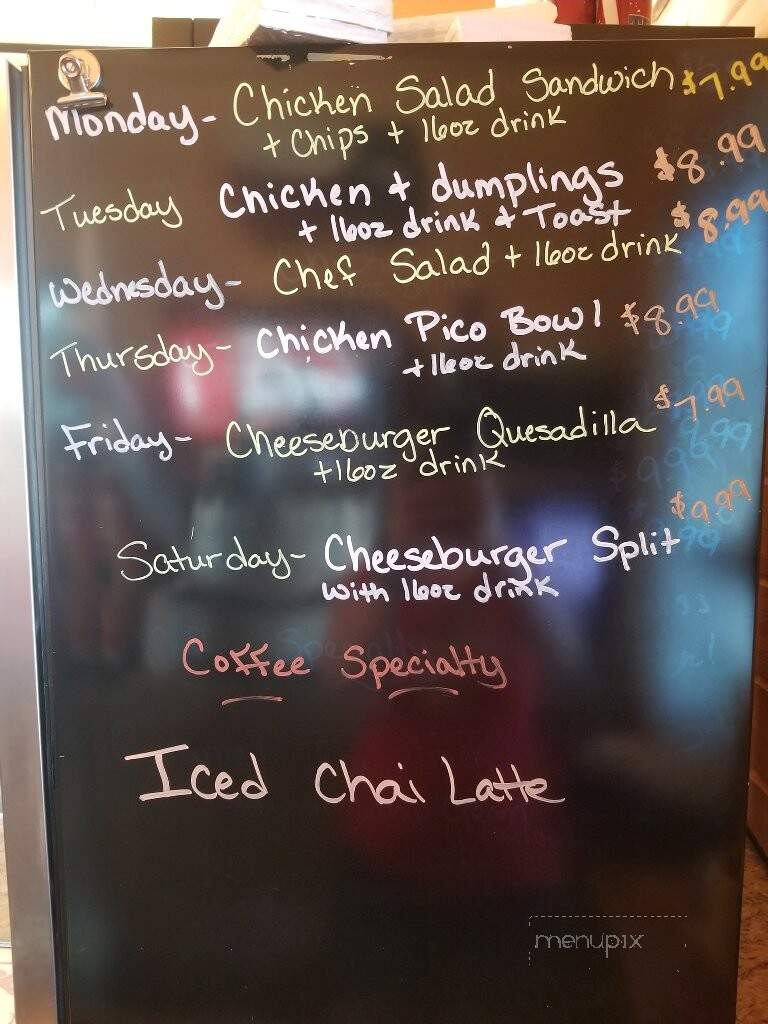 Monday- Chicken Salad Sandwich $7.99
+ Chips + 16oz drink
Tuesday Chicken + dumplings $8.99
+ 16oz drink + Toast
Wednesday- Chef Salad + 16oz drink $8.99
Thursday- Chicken Pico Bowl $8.99
+ 16oz drink
Friday- Cheeseburger Quesadilla $7.99
+16oz drink
Saturday- Cheeseburger Split $9.99
with 16oz drink
Coffee Specialty
Iced Chai Latte
menupix